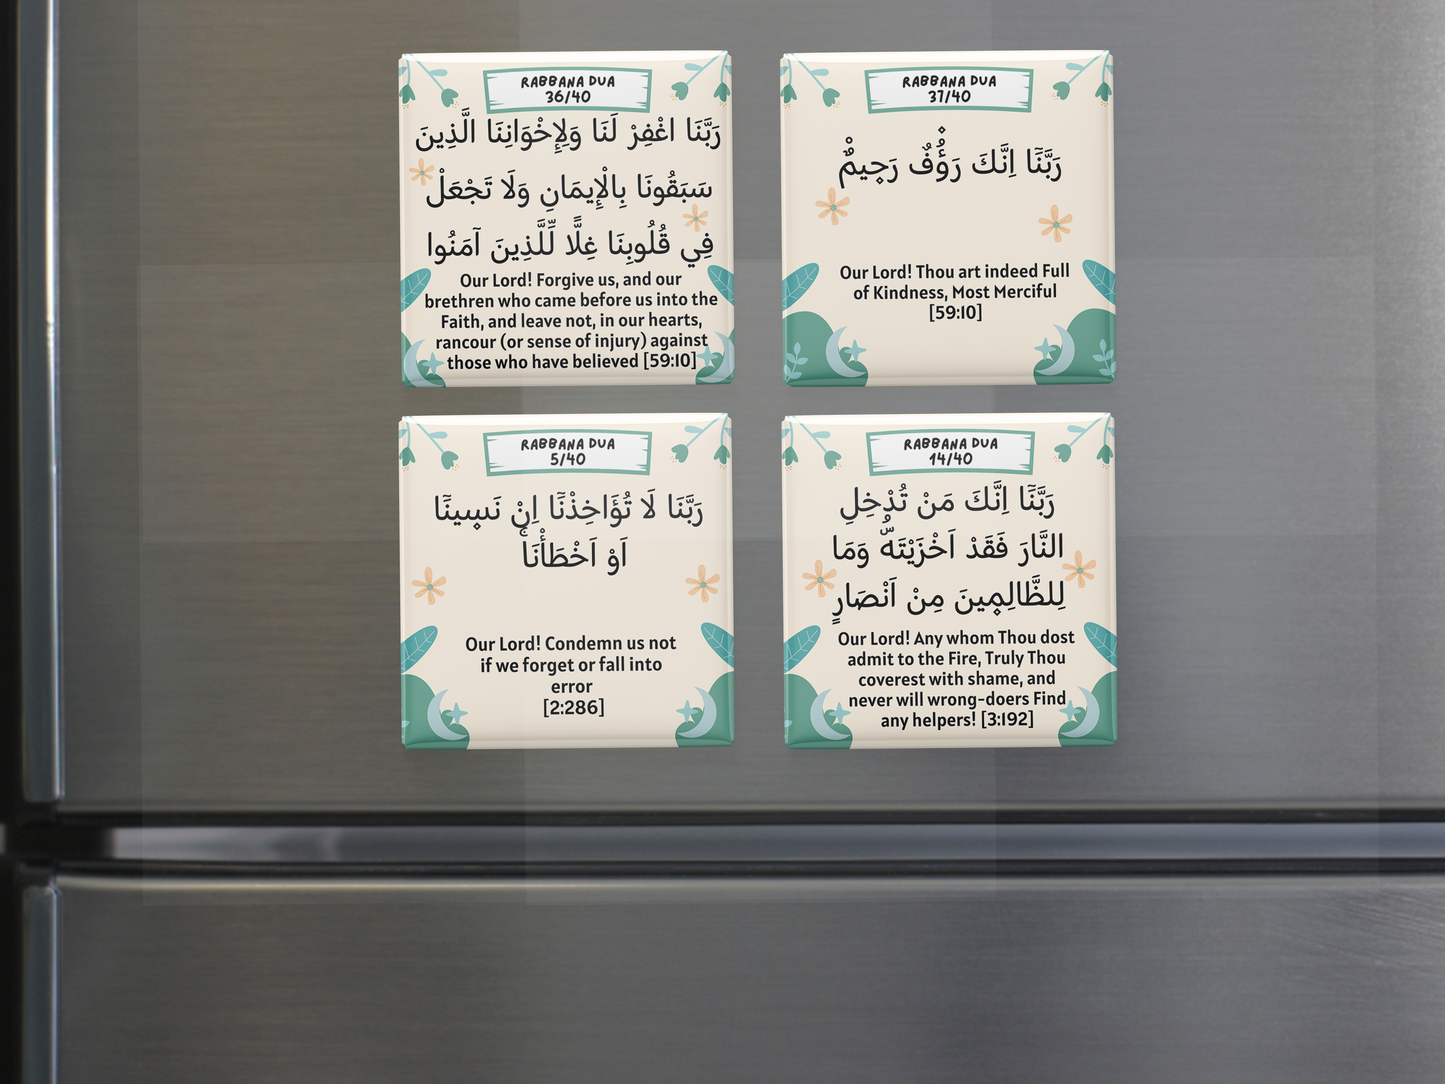 RABBANA DUA
36/40
رَبَّنَا اغْفِرْ لَنَا وَلِإِخْوَانِنَا الَّذِينَ
سَبَقُونَا بِالْإِيمَانِ وَلَا تَجْعَلْ
فِي قُلُوبِنَا غِلًّا لِّلَّذِينَ آمَنُوا
Our Lord! Forgive us, and our
brethren who came before us into the
Faith, and leave not, in our hearts,
rancour (or sense of injury) against
those who have believed [59:10]
RABBANA DUA
37/40
رَبَّنَٓا اِنَّكَ رَؤُ۫فٌ رَح۪يمٌ۟
Our Lord! Thou art indeed Full
of Kindness, Most Merciful
[59:10]
RABBANA DUA
5/40
رَبَّنَا لَا تُؤَاخِذْنَٓا اِنْ نَس۪ينَٓا
اَوْ اَخْطَأْنَاۚ
Our Lord! Condemn us not
if we forget or fall into
error
[2:286]
RABBANA DUA
14/40
رَبَّنَٓا اِنَّكَ مَنْ تُدْخِلِ
النَّارَ فَقَدْ اَخْزَيْتَهُۜ وَمَا
لِلظَّالِم۪ينَ مِنْ اَنْصَارٍ
Our Lord! Any whom Thou dost
admit to the Fire, Truly Thou
coverest with shame, and
never will wrong-doers Find
any helpers! [3:192]